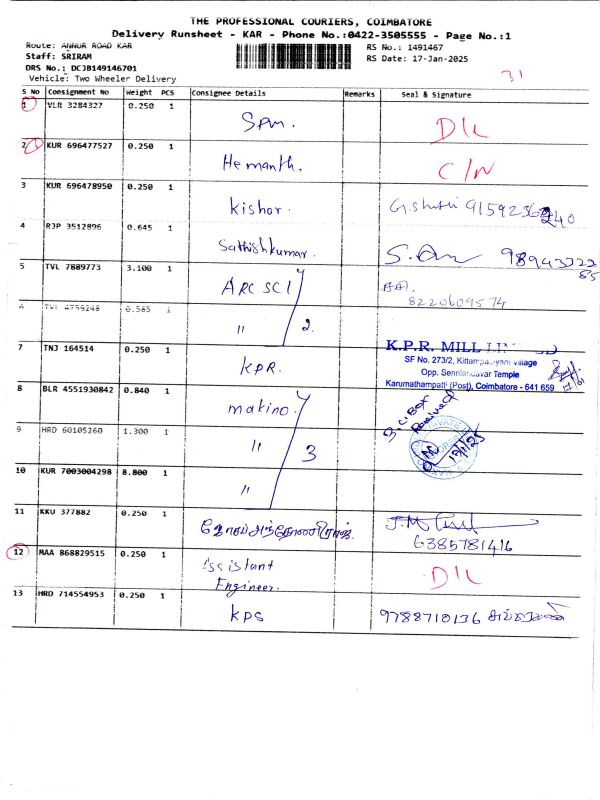 THE PROFESSIONAL COURIERS, COIMBATORE
Delivery Runsheet - KAR - Phone No.:0422-3505555 - Page No.:1
Route: ANNUR ROAD KAR
RS No.: 1491467
Staff: SRIRAM
RS Date: 17-Jan-2025
DRS No.: DCJB149146701
Vehicle: Two Wheeler Delivery
31
S No Consignment No Weight PCS Consignee Details Remarks Seal & Signature
1 VLR 3284327 0.250 1
SPM. D/L
2 KUR 696477527 0.250 1
Hemanth. C/N
3 KUR 696478950 0.250 1
Kishor.
4 RJP 3512896 0.645 1
Sathishkumar.
5 TVL 7889773 3.100 1
ARC SCI
8220609574
6 TVL 4759248 0.585 1
" 2.
7 TNJ 164514 0.250 1
KPR.
K.P.R. MILL
SF No. 273/2, Kittampalayam Village
Opp. Senniandavar Temple
Karumathampatti (Post), Coimbatore - 641 659
8 BLR 4551930842 0.840 1
makino.
Received
9 HRD 60105260 1.300 1
" 3
17/1/25
10 KUR 7003004298 8.800 1
"
11 KKU 377882 0.250 1
6385781416
12 MAA 868829515 0.250 1
Assistant D/L
Engineer.
13 HRD 714554953 0.250 1
KPS 9788710136